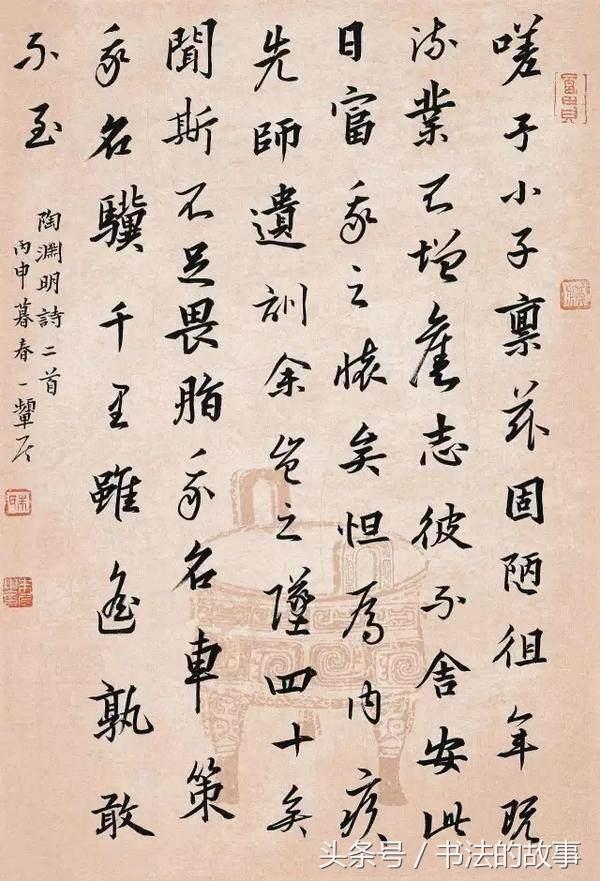 嗟予小子禀茲固陋徂年既
流業不增舊志彼不舍安此
日富我之懷矣怛焉内疚
先師遺訓余豈之墜四十无
聞斯不足畏脂我名車策
我名驥千里雖遙孰敢
不至
陶淵明詩二首
丙申暮春一
头条号／书法的故事